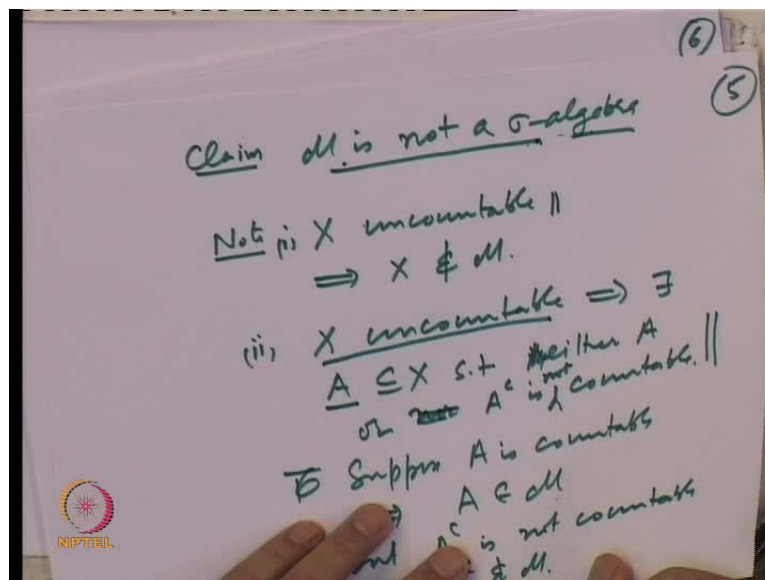 ⑥
⑤
Claim ℳ is not a σ-algebra
Note (i) X uncountable ||
⟹ X ∉ ℳ.
(ii) X uncountable ⟹ ∃
A ⊆ X s.t. either A
or Aᶜ is not countable. ||
Suppose A is countable
⇒ A ∈ ℳ
Aᶜ is not countable
∉ ℳ.
NPTEL